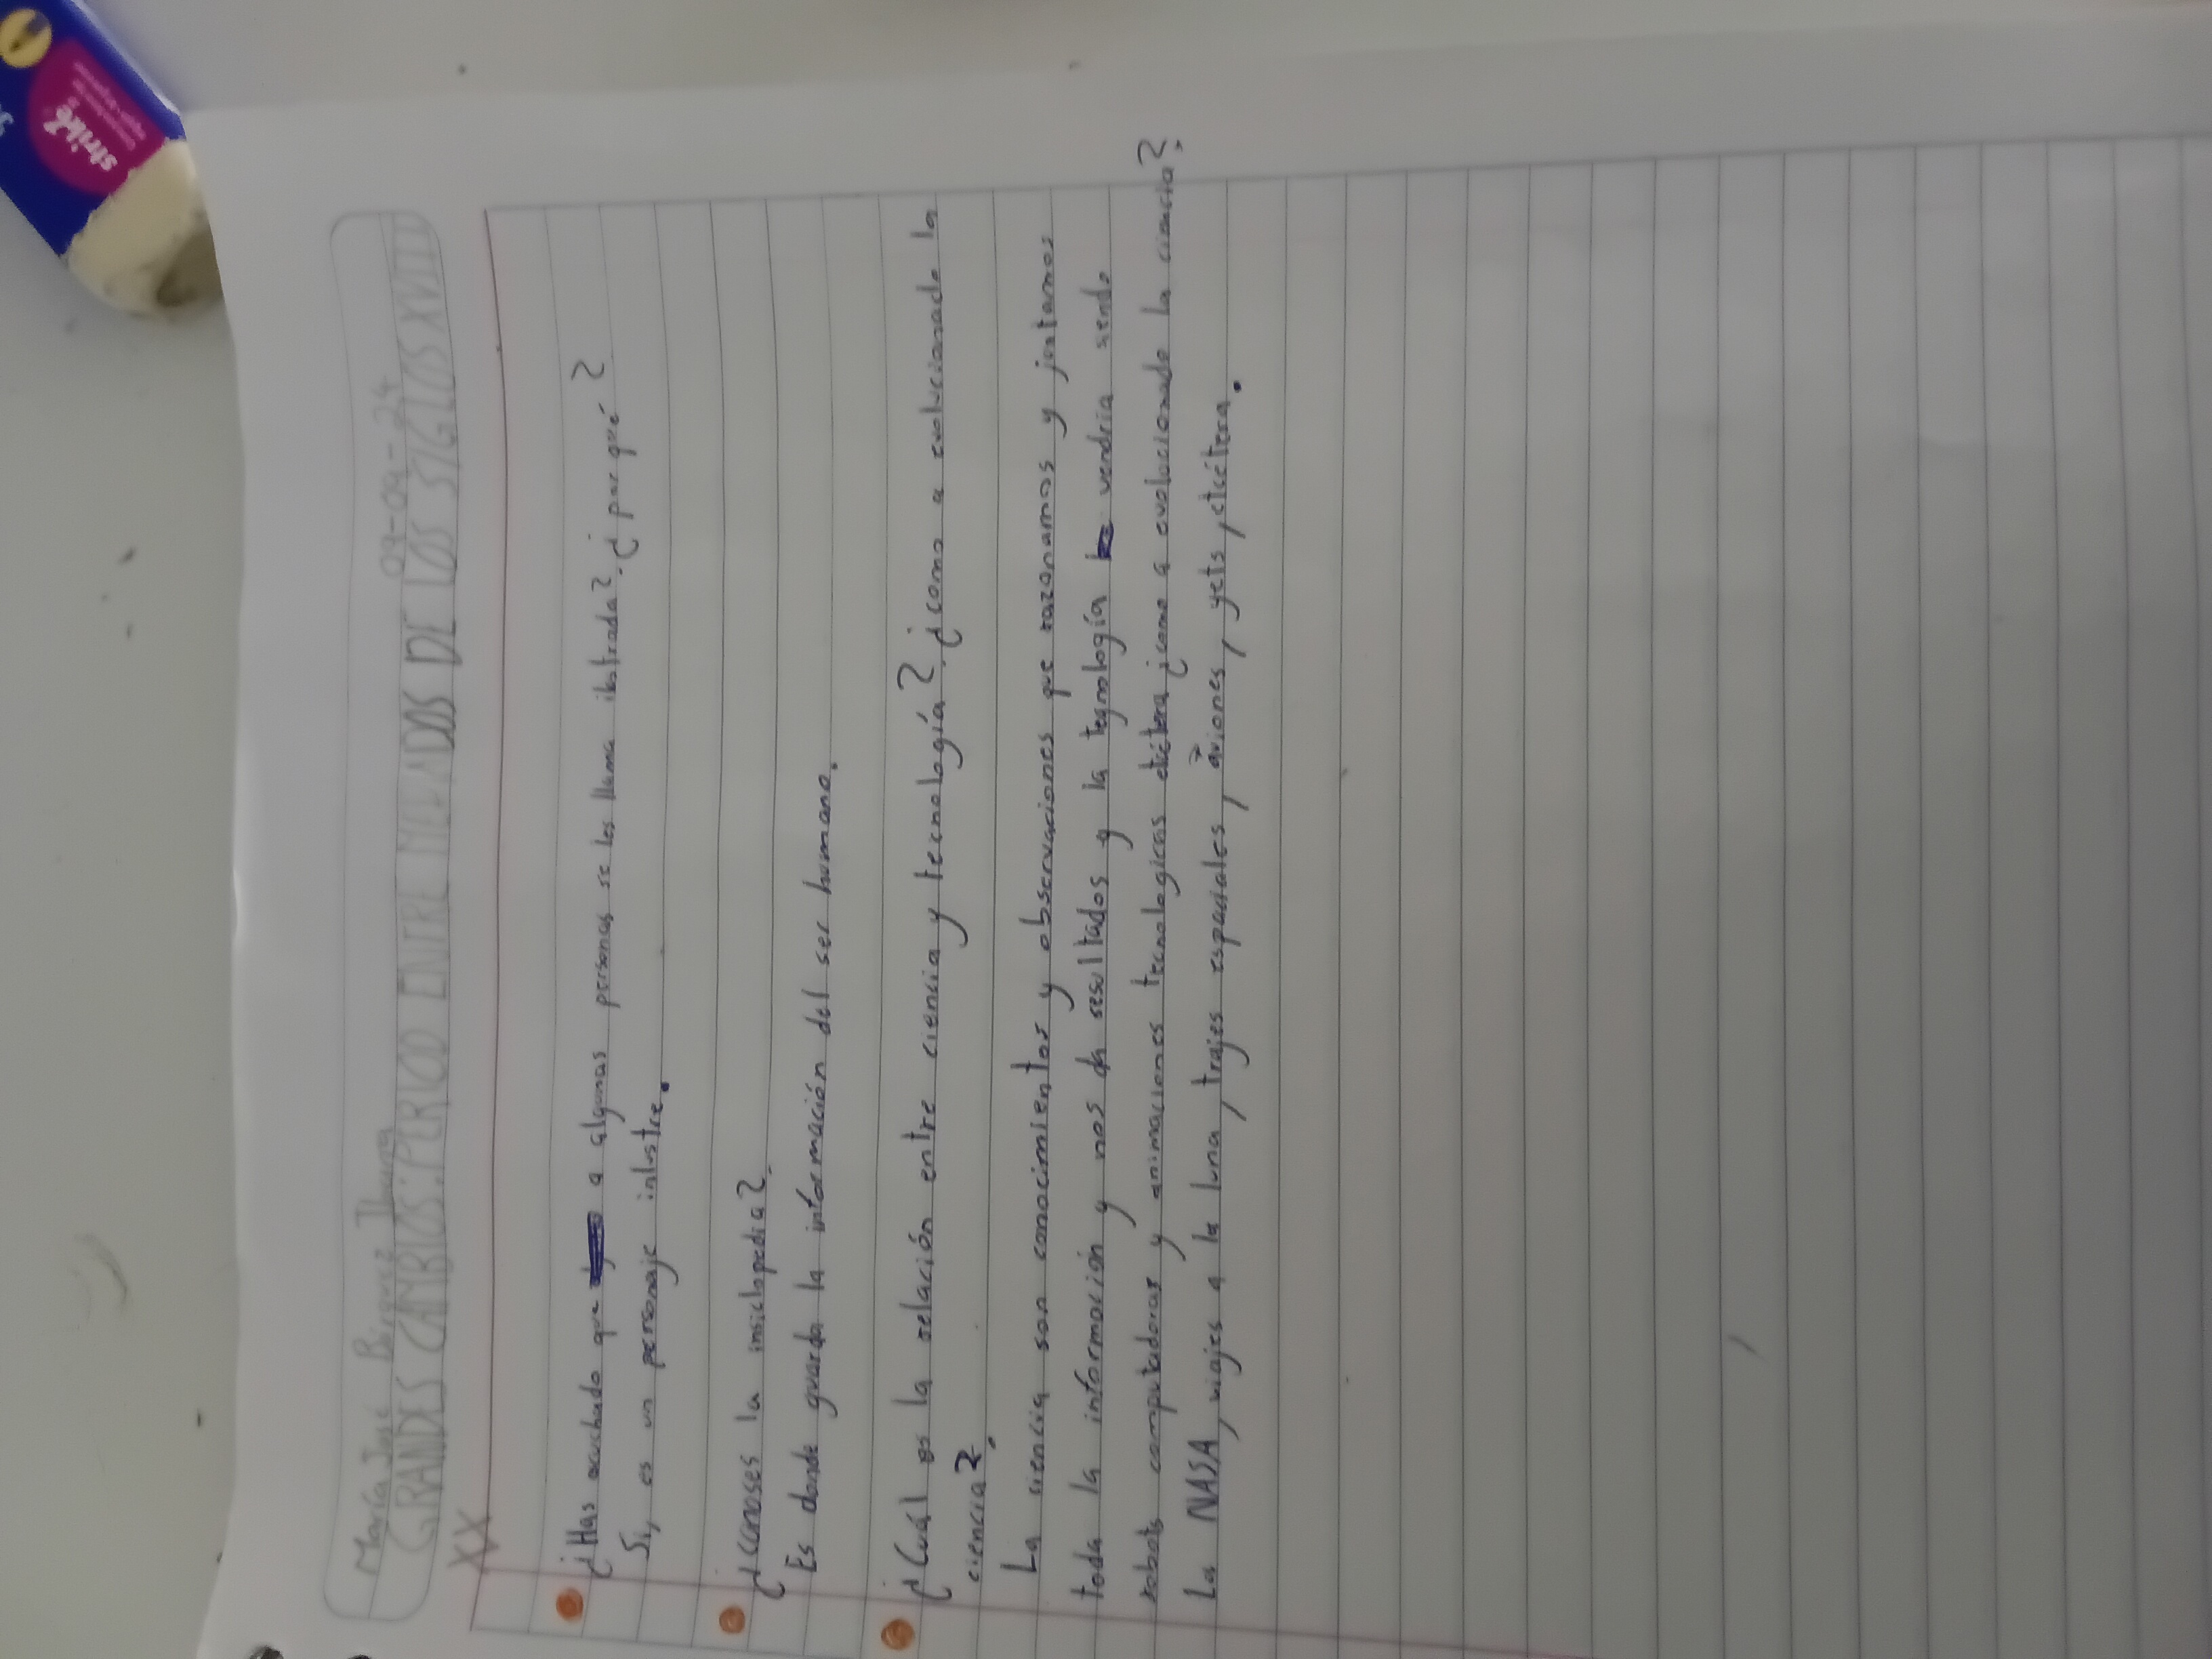 strike
María José
09-09-24
GRANDES CAMBIOS: PERIOD ENTRE MEDIADOS DE LOS SIGLOS XVIII
XX
¿Has escuchado que a algunas personas se les llama ilustrada? ¿por qué?
Si, es un personaje inlustre.
¿conoses la insiclopedia?
Es donde guarda la información del ser humano.
¿Cuál es la relación entre ciencia y tecnología? ¿como a evolucionado la
ciencia?
La ciencia son conocimientos y observaciones que razonamos y juntamos
toda la información y nos da resultados y la tegnología vendria siendo
robots computadoras y animaciones tecnologicas etcétera ¿como a evolucionado la ciencia?
La NASA, viajes a la luna, trajes espaciales, aviones, yets, etcétera.